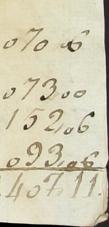 070.06
073.00
152.06
093.06
40711.